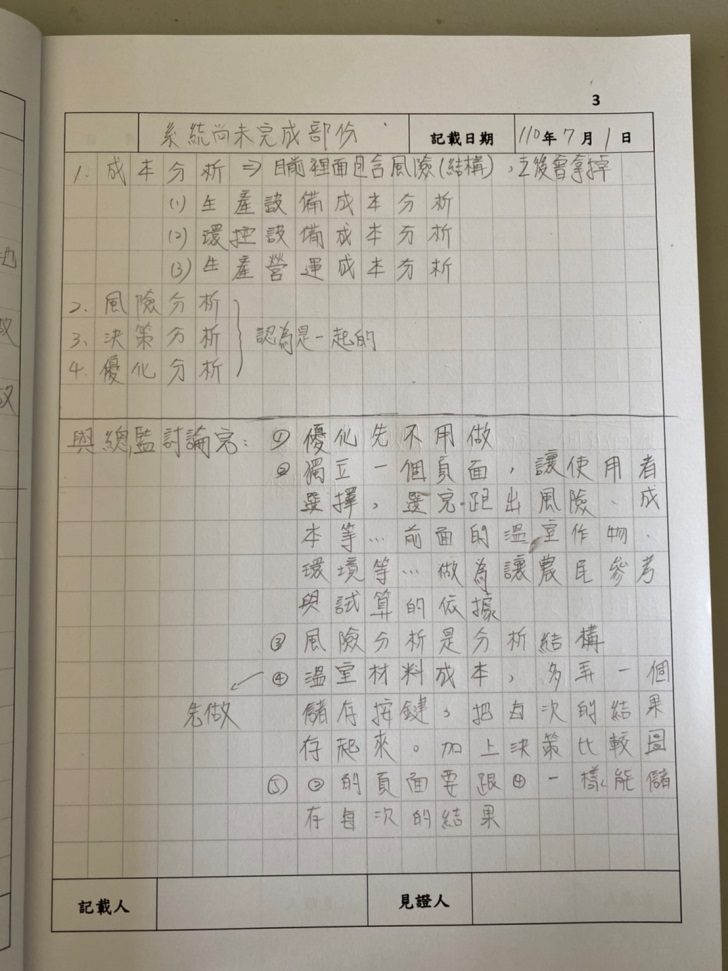 3
系統尚未完成部份 記載日期 110年7月1日
1. 成本分析 ⇒ 目前裡面包含風險(結構),之後會拿掉
(1) 生產設備成本分析
(2) 環控設備成本分析
(3) 生產營運成本分析
2. 風險分析
3. 決策分析 認為是一起的
4. 優化分析
與總監討論完: ① 優化先不用做
② 獨立一個頁面,讓使用者
選擇,選完跑出風險、成
本等…前面的溫室作物、
環境等…做為讓農民參考
與試算的依據
③ 風險分析是分析結構
④ 溫室材料成本,多弄一個
先做 儲存按鍵,把每次的結果
存起來。加上決策比較圖
⑤ ②的頁面要跟④一樣能儲
存每次的結果
記載人 見證人